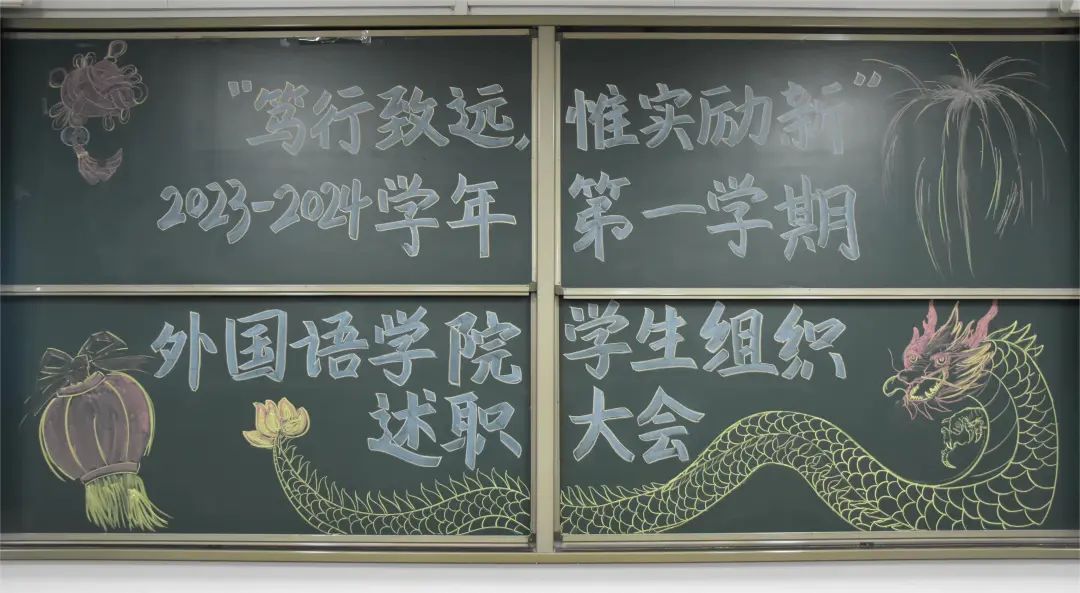 “笃行致远，惟实励新”
2023-2024学年第一学期
外国语学院学生组织
述职大会